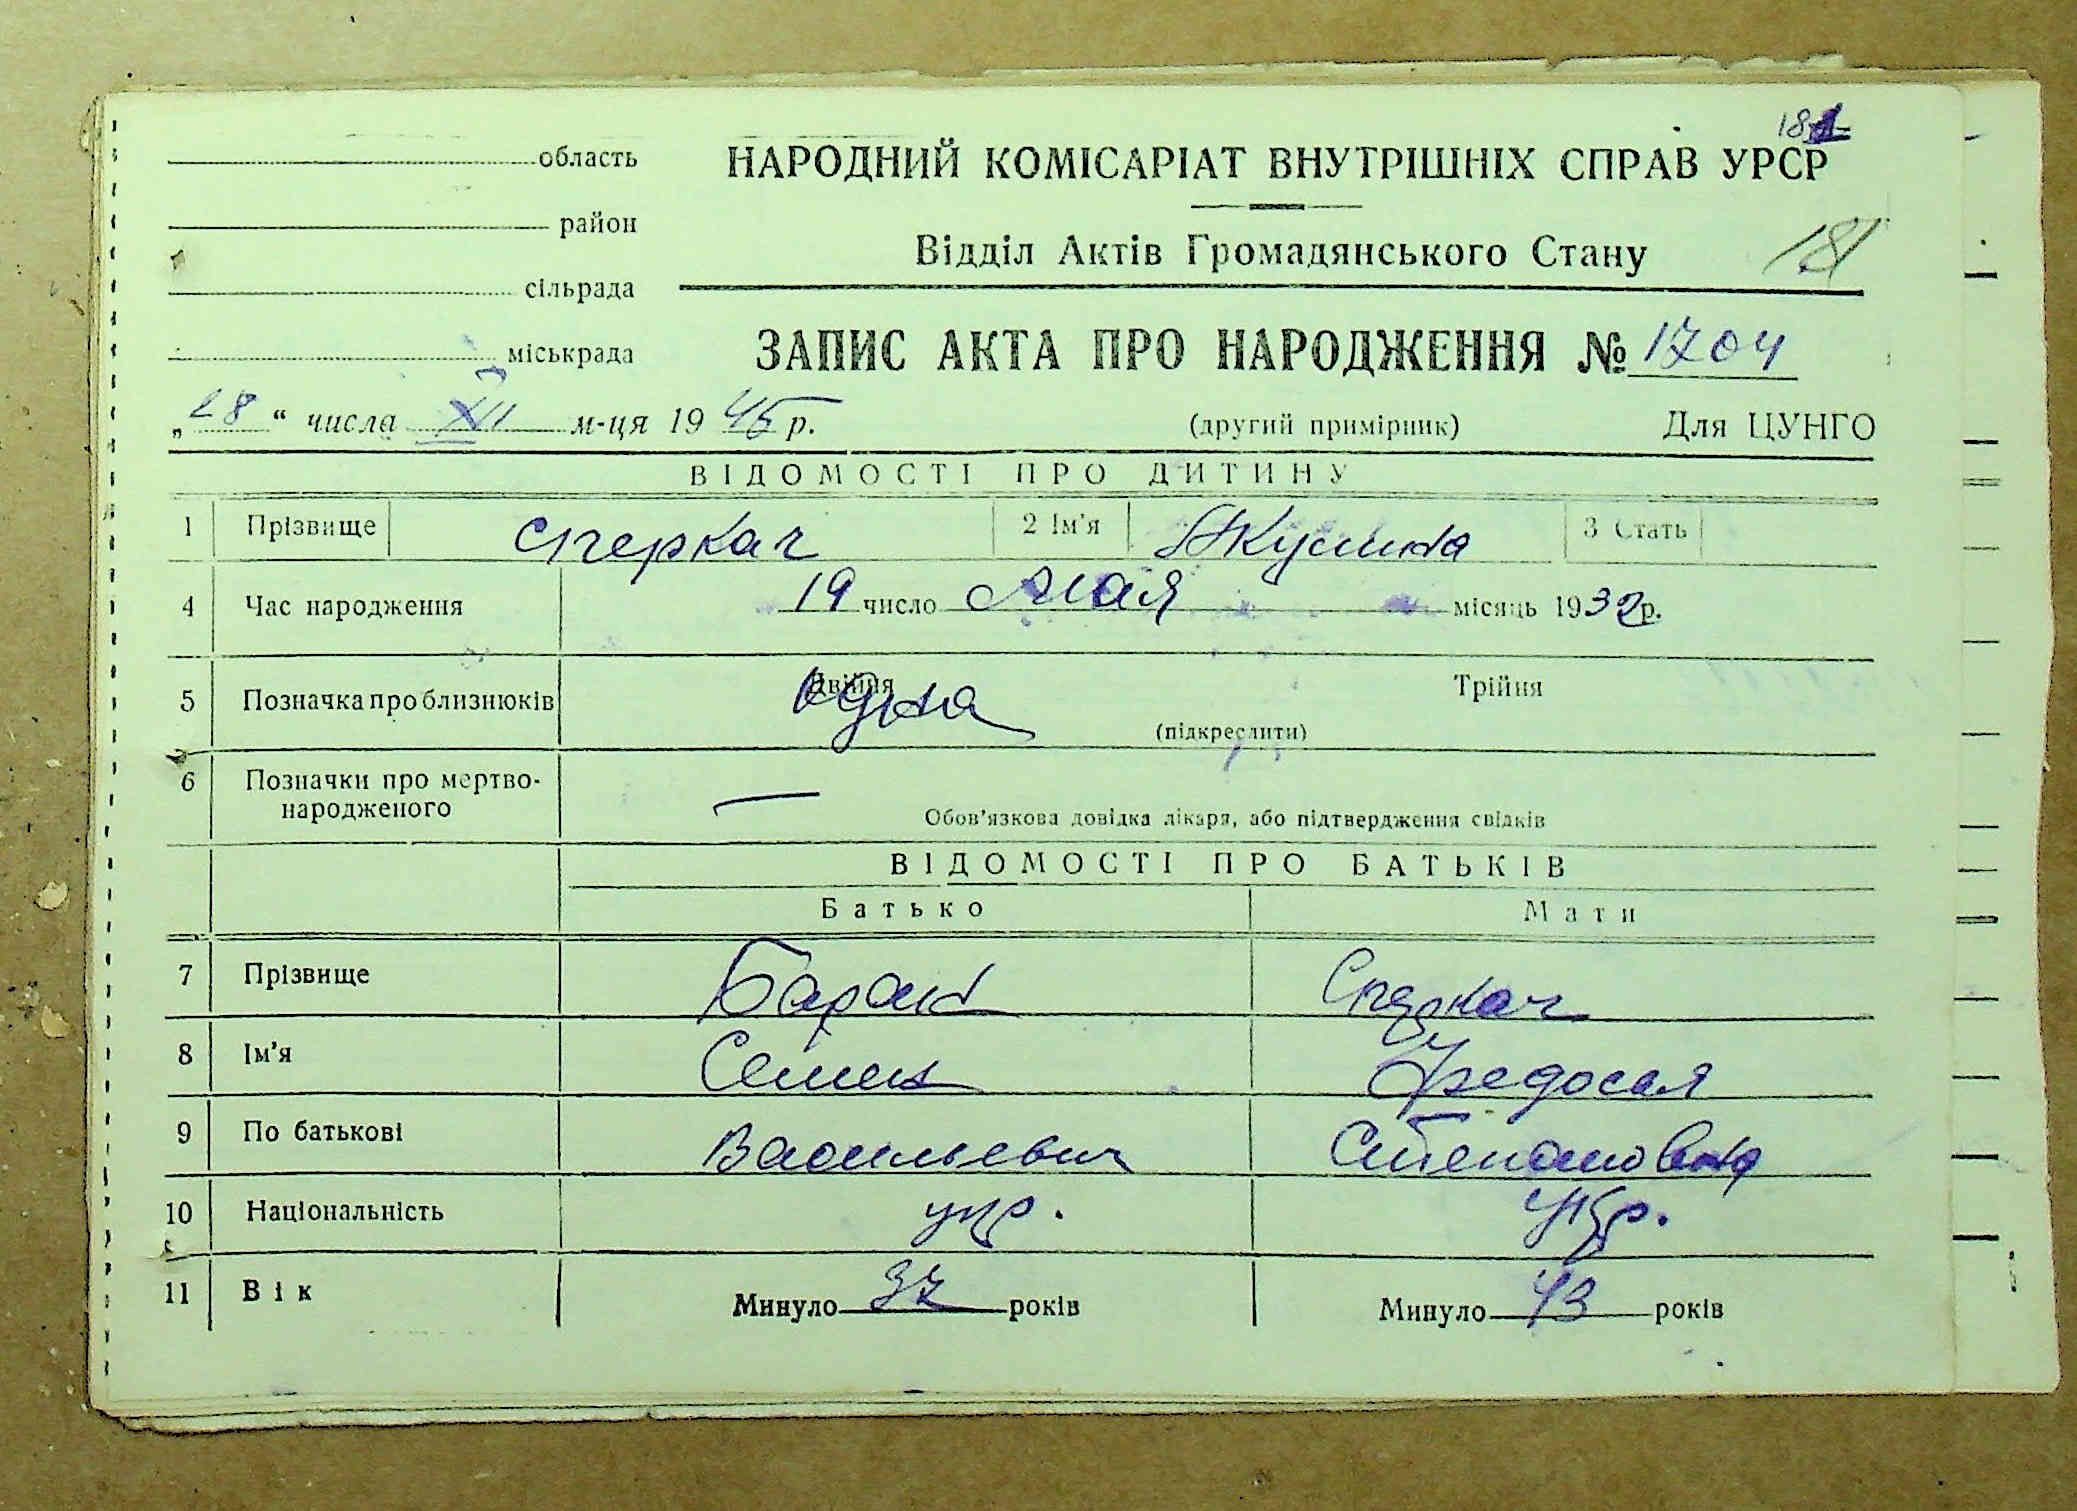 181
область НАРОДНИЙ КОМІСАРІАТ ВНУТРІШНІХ СПРАВ УРСР
район
Відділ Актів Громадянського Стану 181
сільрада
міськрада ЗАПИС АКТА ПРО НАРОДЖЕННЯ № 1704
„28“ числа XII м-ця 1945 р. (другий примірник) Для ЦУНГО
ВІДОМОСТІ ПРО ДИТИНУ
1 Прізвище 2 Ім'я 3 Стать
4 Час народження 19 число Мая місяць 1932р.
5 Позначка про близнюків Двійня одна Трійня
(підкреслити)
6 Позначки про мертво-
народженого —
Обов'язкова довідка лікаря, або підтвердження свідків
ВІДОМОСТІ ПРО БАТЬКІВ
Батько Мати
7 Прізвище
8 Ім'я Семен Федосия
9 По батькові Васильевич Степановна
10 Національність укр. укр.
11 Вік Минуло 37 років Минуло 43 років